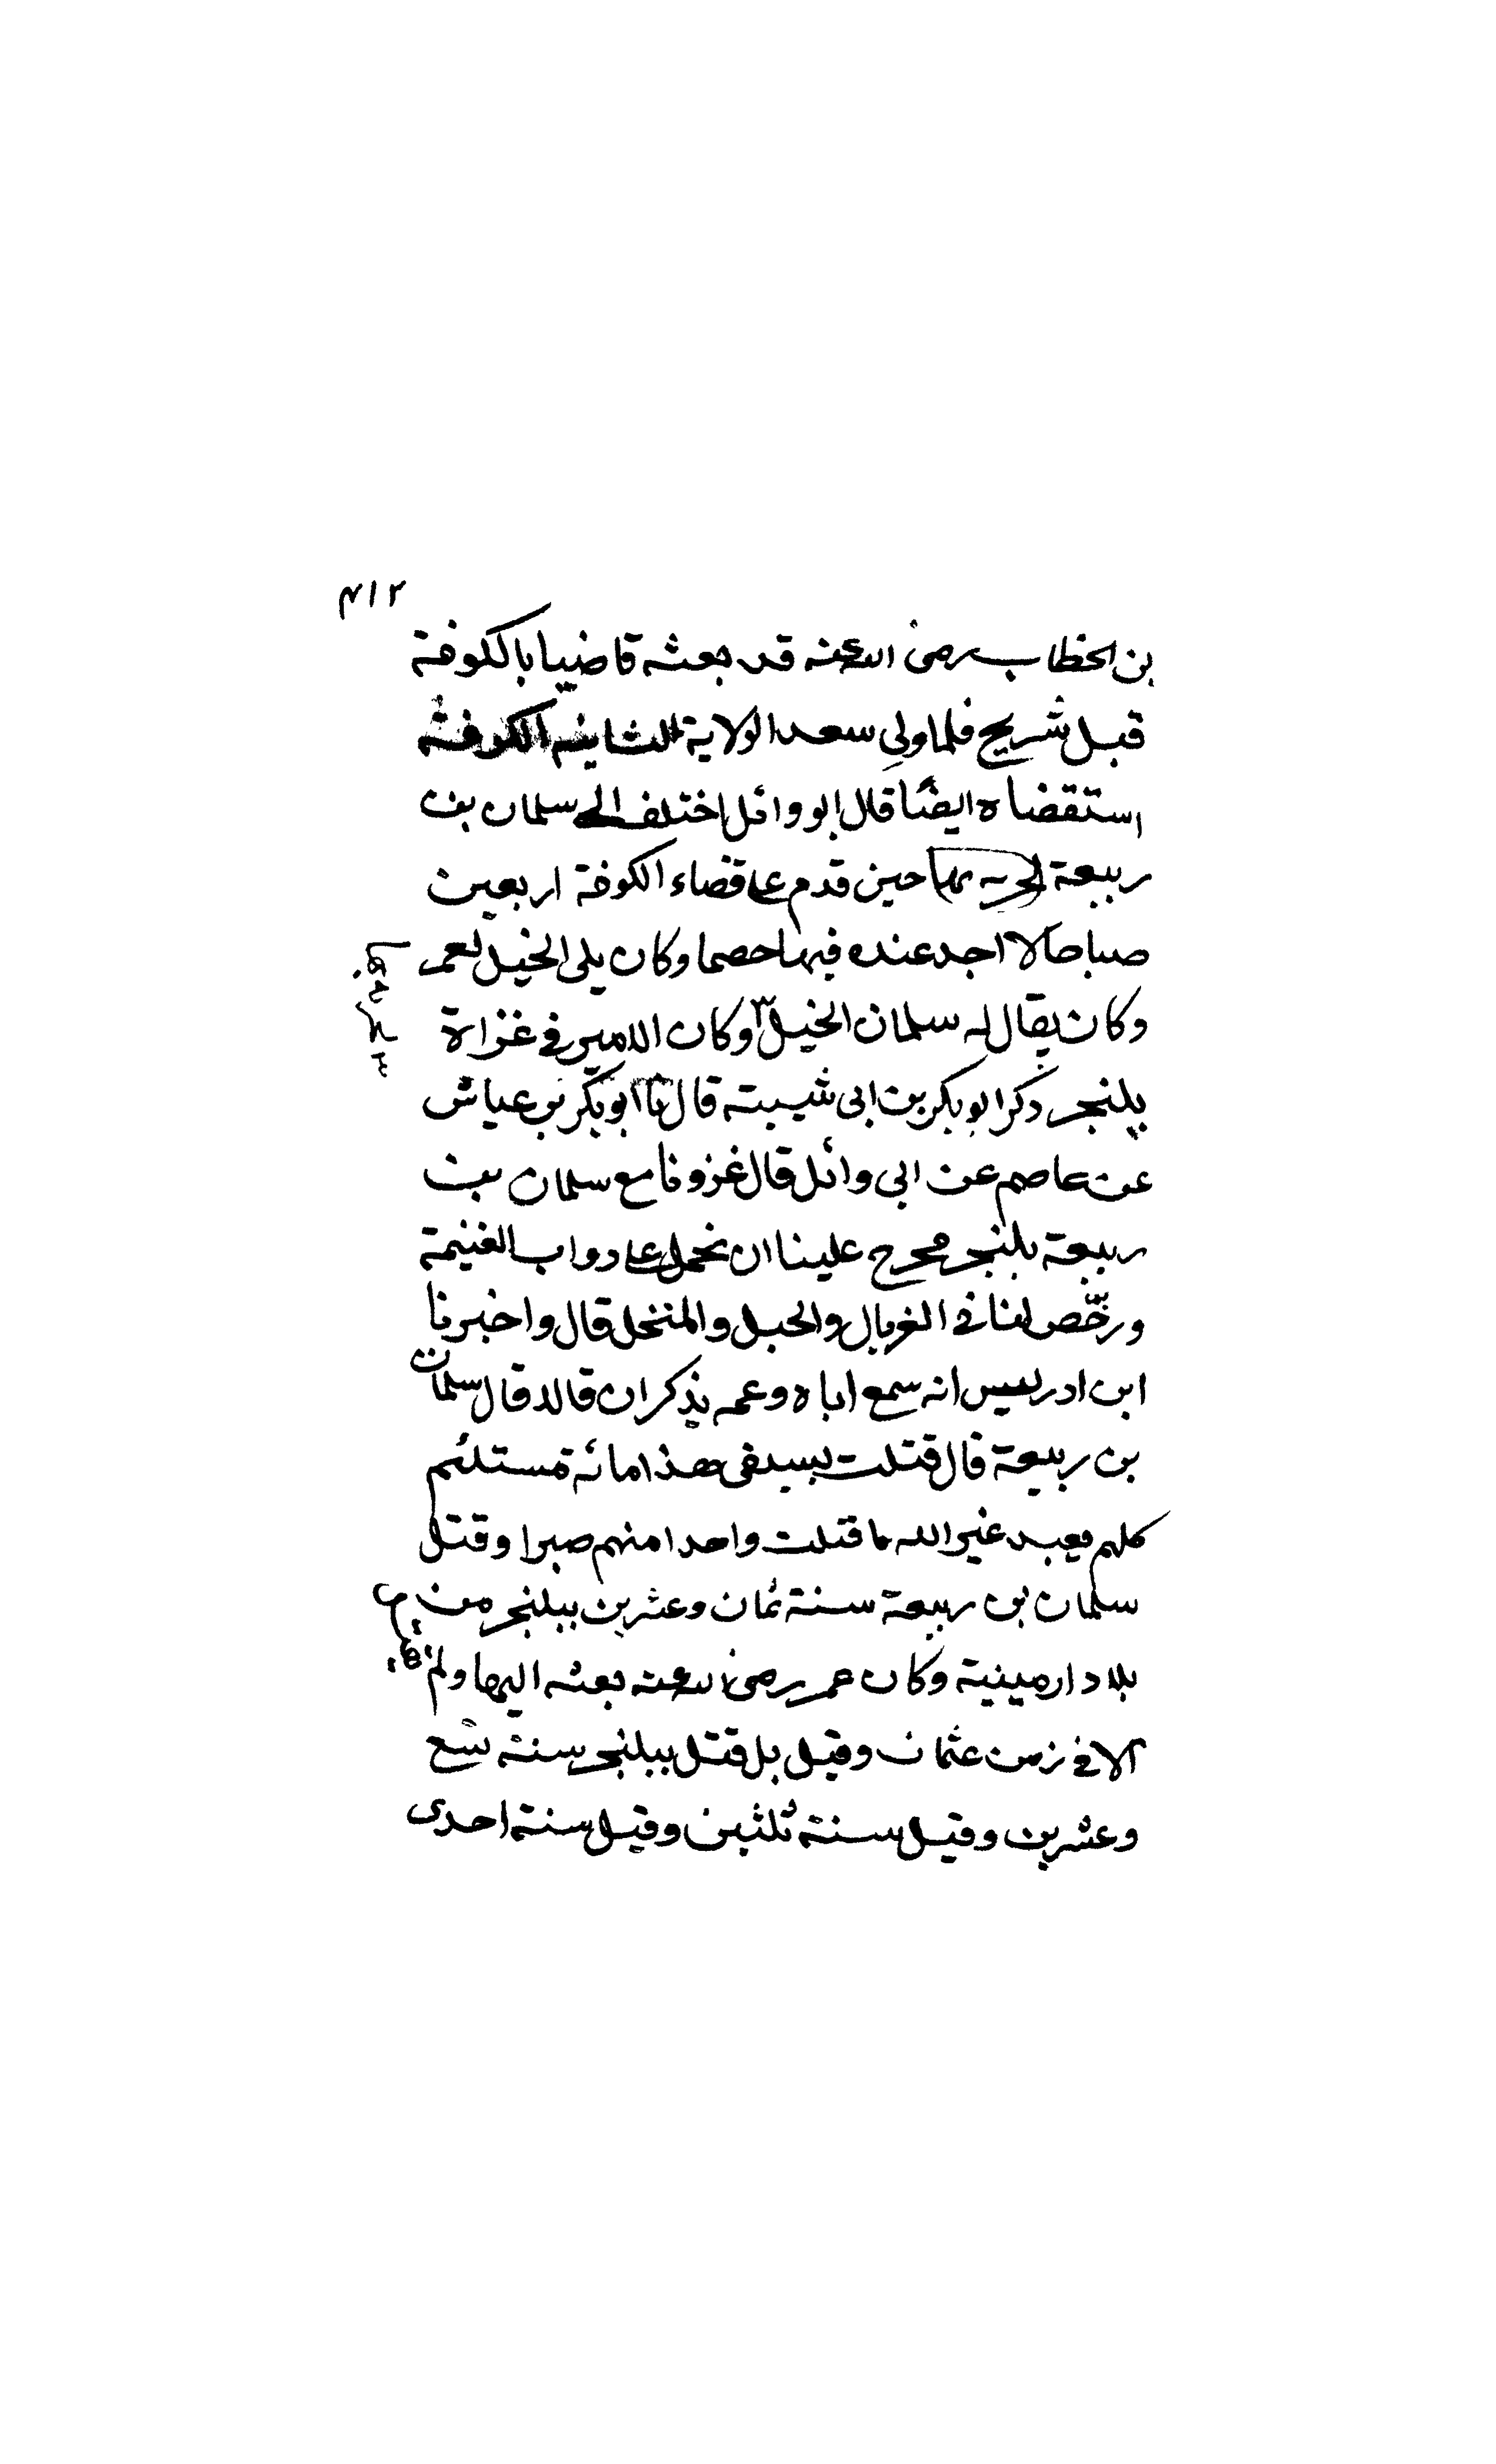 بن الخطاب رضى الله عنه قد بعثه قاضيا بالكوفة
قبل شريح فلما ولي سعد الولاية الثانية الكوفة
استقضاه ايضًا قال ابو وائل اختلف الى سلمان بن
ربيعة حين قدم على قضاء الكوفة اربعين
صباحا لا اجد عنده فيها خصما وكان يلى الخيل لعمر
وكان يقال له سلمان الخيل وكان الامير في غزاة
بلنجر ذكر ابو بكر بن ابى شيبة قال نا ابو بكر بن عياش
عن عاصم عن ابى وائل قال غزونا مع سلمان بن
ربيعة بلنجر فحرج علينا ان نحمل على دواب الغنيمة
ورخّص لنا في الغربال والحبل والمنخل قال واخبرنا
ابن ادريس انه سمع اباه وعمه يذكران قالا قال سلمان
بن ربيعة قال قتلت بسيفى هذا مائة مستلئم
كلهم يعبد غير الله ما قتلت واحدا منهم صبرا وقتل
سلمان بن ربيعة سنة ثمان وعشرين ببلنجر من
بلاد ارمينية وكان عمر رضى الله عنه بعثه اليها ولم
الا في زمن عثمان وقيل بل قتل ببلنجر سنة تسع
وعشرين وقيل سنة ثلثين وقيل سنة احدى